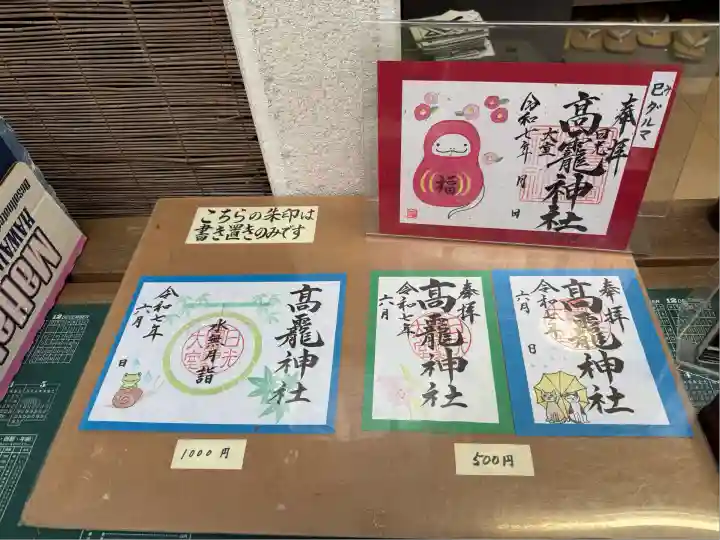 こちらの朱印は
書き置きのみです
巳みダルマ
奉拝
高龗神社
日光
大室
令和七年 月 日
福
高龗神社
水無月詣
日光
大室
令和七年
六月 日
1000円
奉拝
高龗神社
令和七年
六月
奉拝
高龗神社
令和七年
六月 日
500円
HAWAI